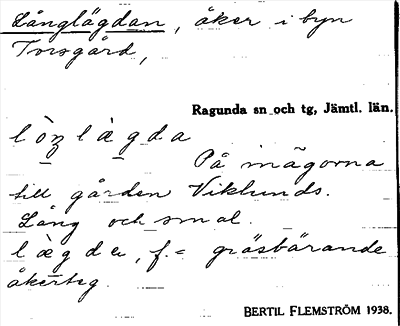 Långlägdan, åker i byn
Torsgård,
Ragunda sn och tg, Jämtl. län.
lòŋlægda
På inägorna
till gården Viklunds.
Lång och smal.
lægda, f. = gräsbärande
åkerteg.
BERTIL FLEMSTRÖM 1938.